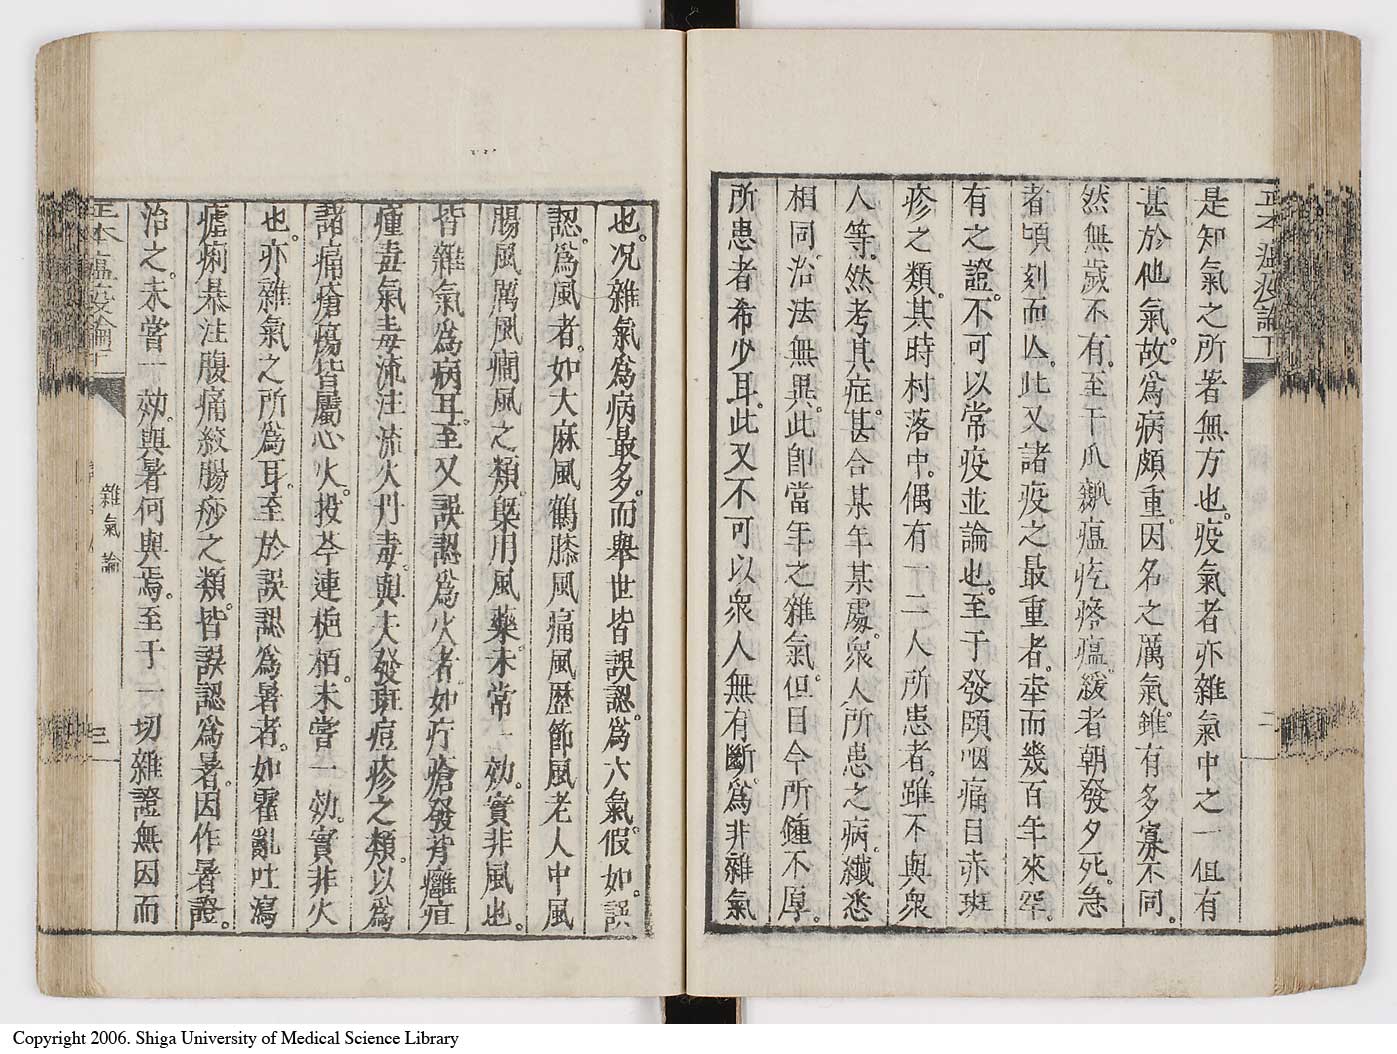 正本瘟疫論下
二
是知氣之所著無方也。疫氣者亦雜氣中之一但有
甚於他氣。故為病頗重。因名之厲氣。雖有多寡不同。
然無歲不有。至于爪瓤瘟疙瘩瘟。緩者朝發夕死。急
者頃刻而亾。此又諸疫之最重者。幸而幾百年來罕
有之證。不可以常疫並論也。至于發頤咽痛目赤班
疹之類。其時村落中。偶有一二人所患者。雖不與衆
人等。然考其症。甚合某年某處。衆人所患之病。纖悉
相同。治法無異。此卽當年之雜氣。但目今所鍾不厚。
所患者希少耳。此又不可以衆人無有斷。為非雜氣
也。况雜氣為病最多。而舉世皆誤認。為六氣。假如。誤
認。為風者。如大麻風鶴膝風痛風歷節風老人中風
腸風厲風癎風之類。槩用風藥。未常一効。實非風也。
皆雜氣為病耳。至又誤認為火者。如疔瘡發背癰疽
瘇毒氣毒流注流火丹毒。與夫發斑痘疹之類。以為
諸痛瘡瘍皆屬心火。投芩連梔栢。未嘗一効。實非火
也。亦雜氣之所為耳。至於誤認為暑者。如霍亂吐瀉
瘧痢暴注腹痛絞腸痧之類。皆誤認為暑。因作暑證。
治之。未嘗一効。與暑何與焉。至于一切雜證無因而
正本瘟疫論下
雜氣論
三
Copyright 2006. Shiga University of Medical Science Library